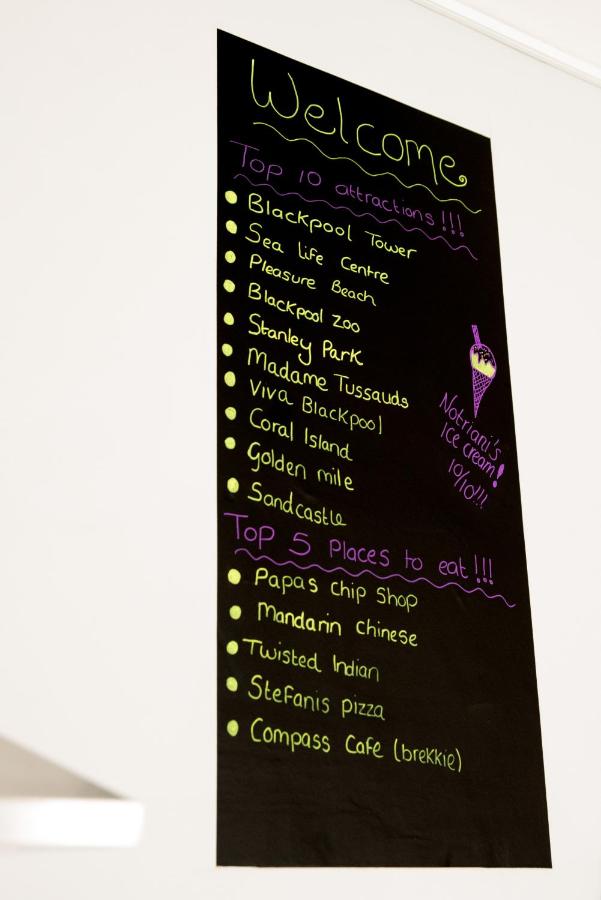 Welcome
Top 10 attractions!!!
Blackpool Tower
Sea life Centre
Pleasure Beach
Blackpool Zoo
Stanley Park
Madame Tussauds
Viva Blackpool
Coral Island
Golden mile
Sandcastle
Notriani's
Ice cream!
10/10!!!
Top 5 Places to eat!!!
Papas Chip Shop
Mandarin Chinese
Twisted Indian
Stefanis pizza
Compass Cafe (brekkie)